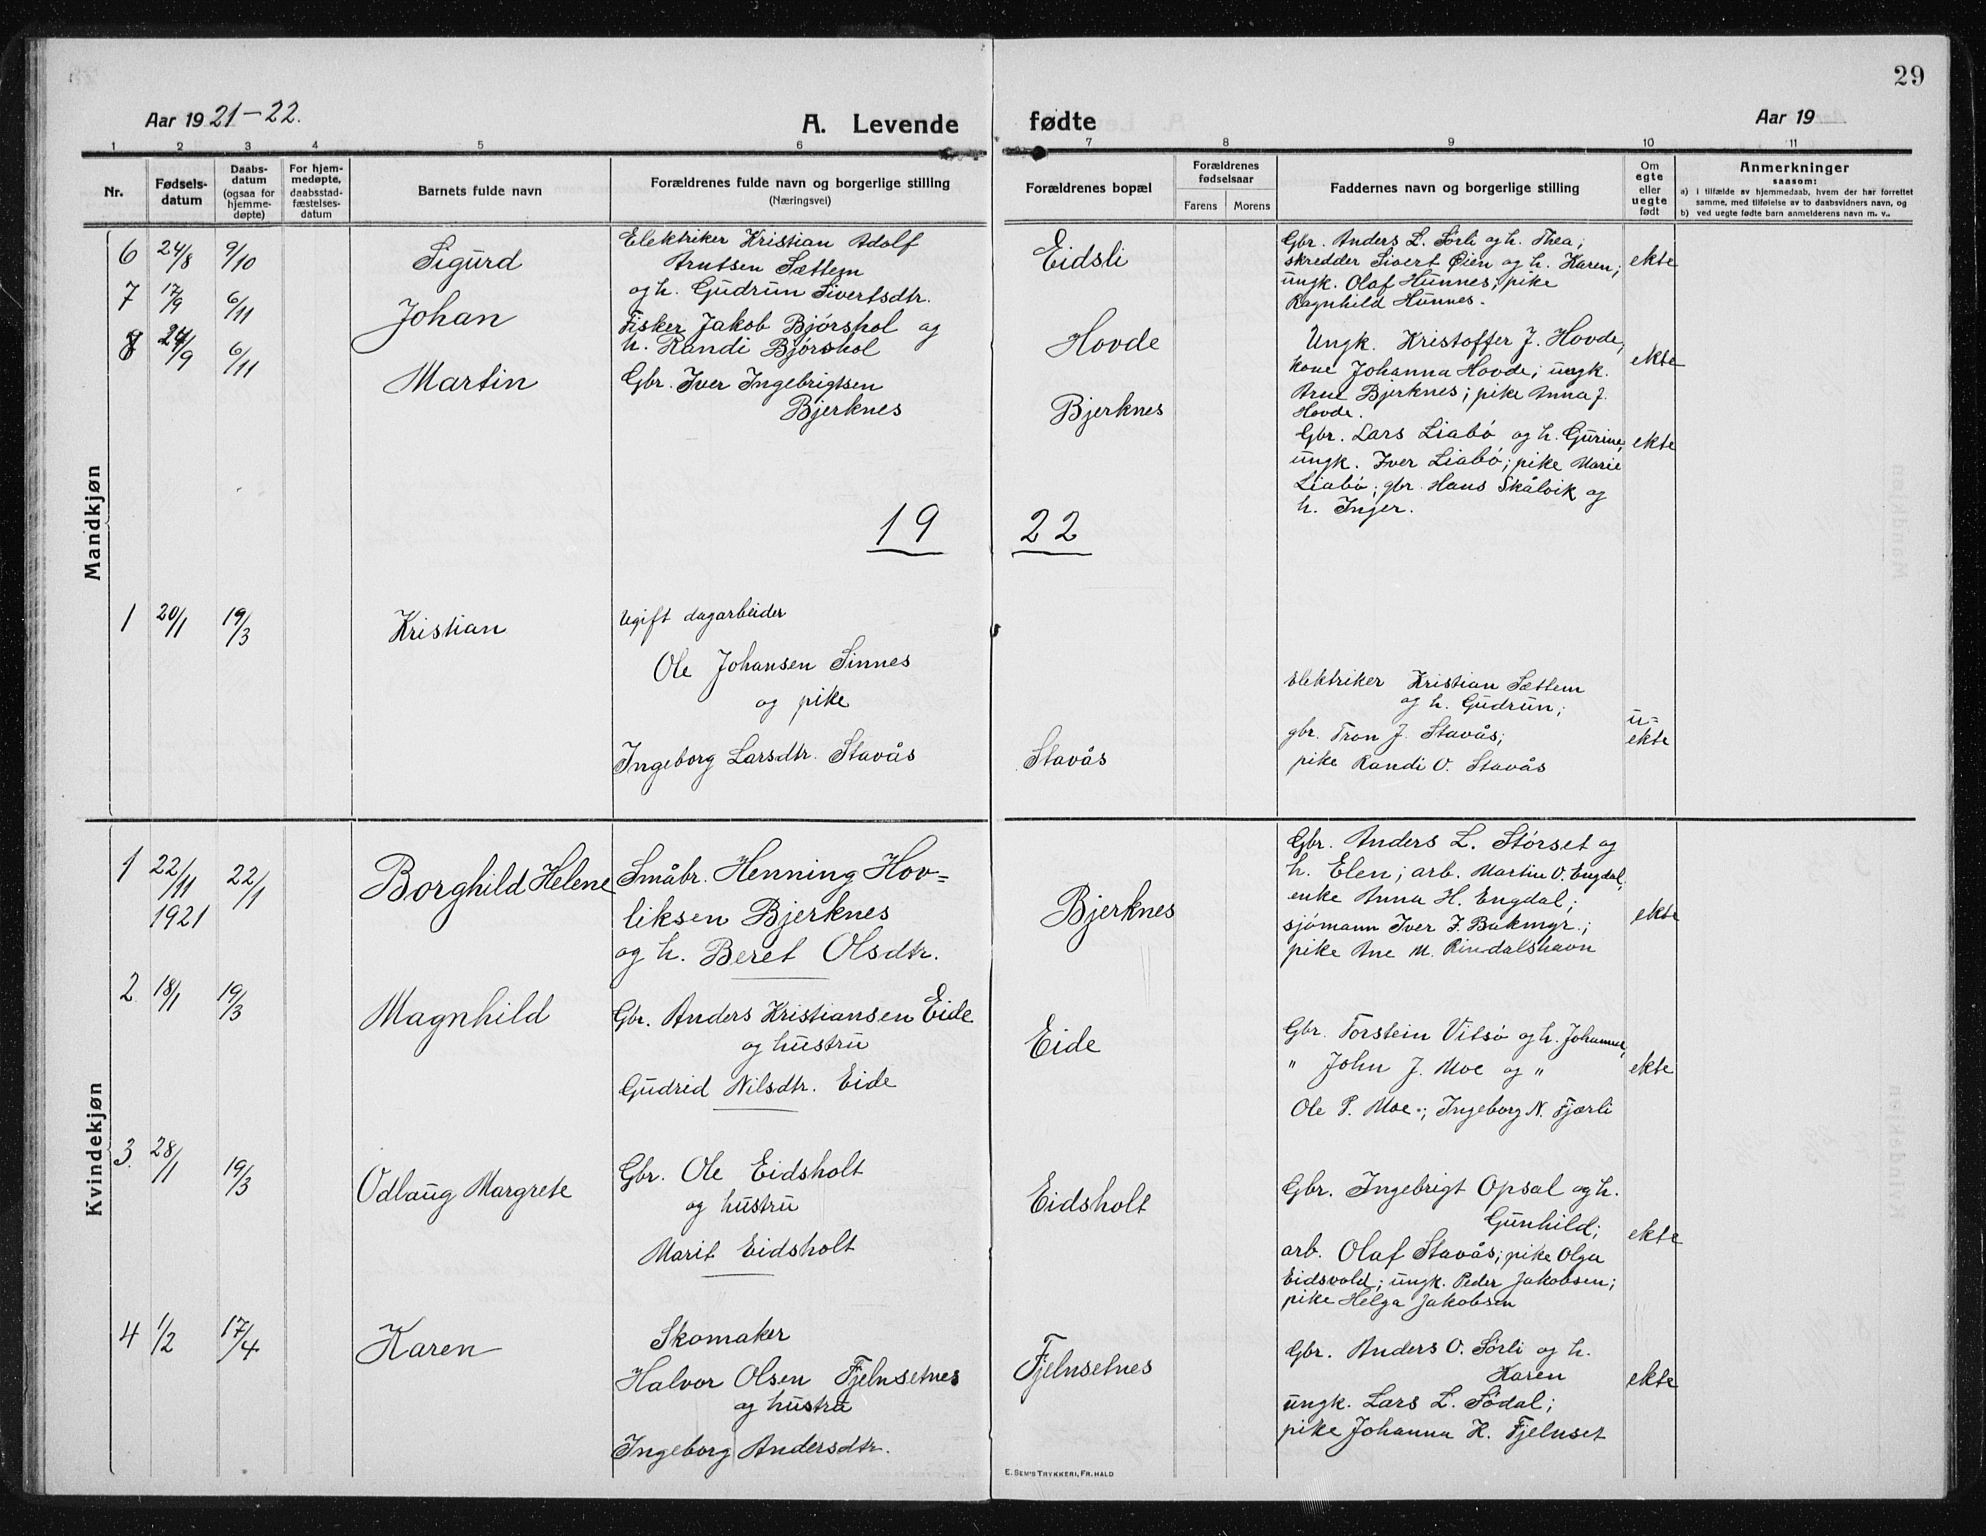 29
Aar 1921-22.
A. Levende fødte
Aar 19
1 2 3 4 5 6 7 8 9 10 11
Nr.
Fødsels-
datum
Daabs-
datum
(ogsaa for
hjemme-
døpte)
For hjem-
medøpte,
daabsstad-
fæstelses-
datum
Barnets fulde navn
Forældrenes fulde navn og borgerlige stilling
(Næringsvei)
Forældrenes bopæl
Forældrenes
fødselsaar
Farens Morens
Faddernes navn og borgerlige stilling
Om
egte
eller
uegte
født
Anmerkninger
saasom:
a) i tilfælde av hjemmedaab, hvem der har forrettet
samme, med tilføielse av to daabsvidners navn, og
b) ved uegte fødte barn anmelderens navn m. v..
Mandkjøn
6 24/8 9/10 Sigurd
Elektriker Kristian Adolf
Arntsen Sættem
og h. Gudrun Sivertsdtr.
Eidsli
Gbr. Anders L. Sørli og h. Thea;
skredder Sivert Øien og h. Karen;
ungk. Olaf Hunnes; pike
Ragnhild Hunnes.
ekte
7 17/9 6/11 Johan
Fisker Jakob Bjørshol og
h. Randi Bjørshol
Hovde
Ungk. Kristoffer J. Hovde,
kone Johanna Hovde; ungk.
Arne Bjerknes; pike Anna J.
Hovde.
ekte
8 24/9 6/11 Martin
Gbr. Iver Ingebrigtsen
Bjerknes
Bjerknes
Gbr. Lars Liabø og h. Gurine,
ungk. Iver Liabø; pike Marie
Liabø; gbr. Hans Skålvik og
h. Inger.
ekte
19 22
1 20/1 19/3 Kristian
Ugift dagarbeider
Ole Johansen Sinnes
og pike
Ingeborg Larsdtr. Stavås
Stavås
Elektriker Kristian Sættem
og h. Gudrun;
gbr. Tron J. Stavås;
pike Randi O. Stavås
u-
ekte
Kvindekjøn
1 22/11 1921 22/1 Borghild Helene
Småbr. Henning Hov-
liksen Bjerknes
og h. Beret Olsdtr.
Bjerknes
Gbr. Anders L. Størset og
h. Elen; arb. Martin O. Engdal,
enke Anna H. Engdal;
sjømann Iver J. Bakmyr.;
pike Ane M. Rindalshavn
ekte
2. 18/1 19/3 Magnhild
Gbr. Anders Kristiansen Eide
og hustru
Gudrid Nilsdtr. Eide
Eide
Gbr. Torstein Vitsø og h. Johanne,
" John J. Moe og "
Ole P. Moe.; Ingeborg N. Fjærli
ekte
3. 28/1 19/3 Odlaug Margrete
Gbr. Ole Eidsholt
og hustru
Marit Eidsholt
Eidsholt
Gbr. Ingebrigt Opsal og h.
Gunhild;
arb. Olaf Stavås; pike Olga
Eidsvold; ungk. Peder Jakobsen;
pike Helga Jakobsen
ekte
4 1/2 17/4 Karen
Skomaker
Halvor Olsen Fjelnsetnes
og hustru
Ingeborg Andersdtr.
Fjelnsetnes
Gbr. Anders O. Sørli og h.
Karen
ungk. Lars L. Sødal;
pike Johanna H. Fjelnset
ekte
E. SEM'S TRYKKERI, FR. HALD